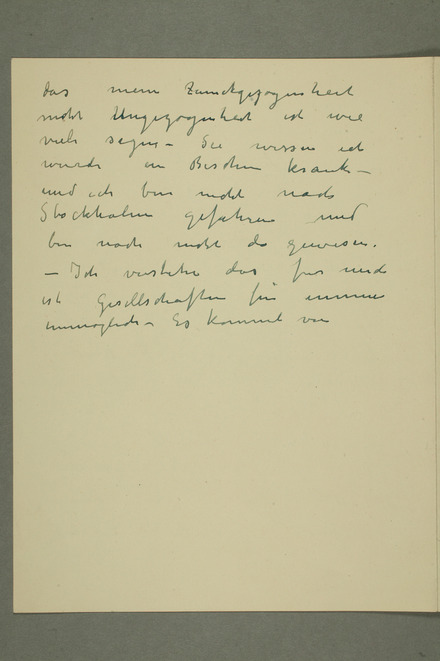 das mein Zurückgezogenheit
nicht Ungezogenheit ist wie
viele sagen – Sie wissen ich
wurde in krank –
und ich bin nicht nach
Stockholm gefahren und
bin noch nicht da gewesen.
– Ich verstehe das für mich
ist Gesellschaften für immer
unmöglich – Es kommt von